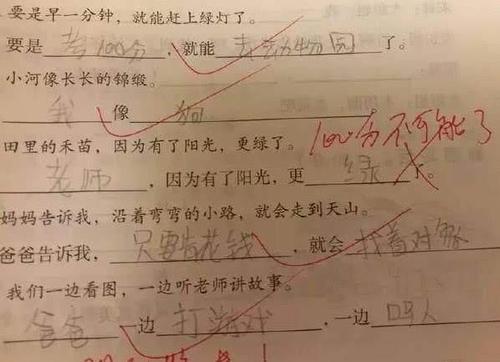 要是早一分钟，就能赶上绿灯了。
要是 考100分 ，就能 去动物园 了。
小河像长长的锦缎。
我 像 狗
田里的禾苗，因为有了阳光，更绿了。
100分不可能了
老师 ，因为有了阳光，更 绿 了。
妈妈告诉我，沿着弯弯的小路，就会走到天山。
爸爸告诉我， 只要肯花钱 ，就会 找着对象
我们一边看图，一边听老师讲故事。
爸爸 一边 打游戏 ，一边 骂人